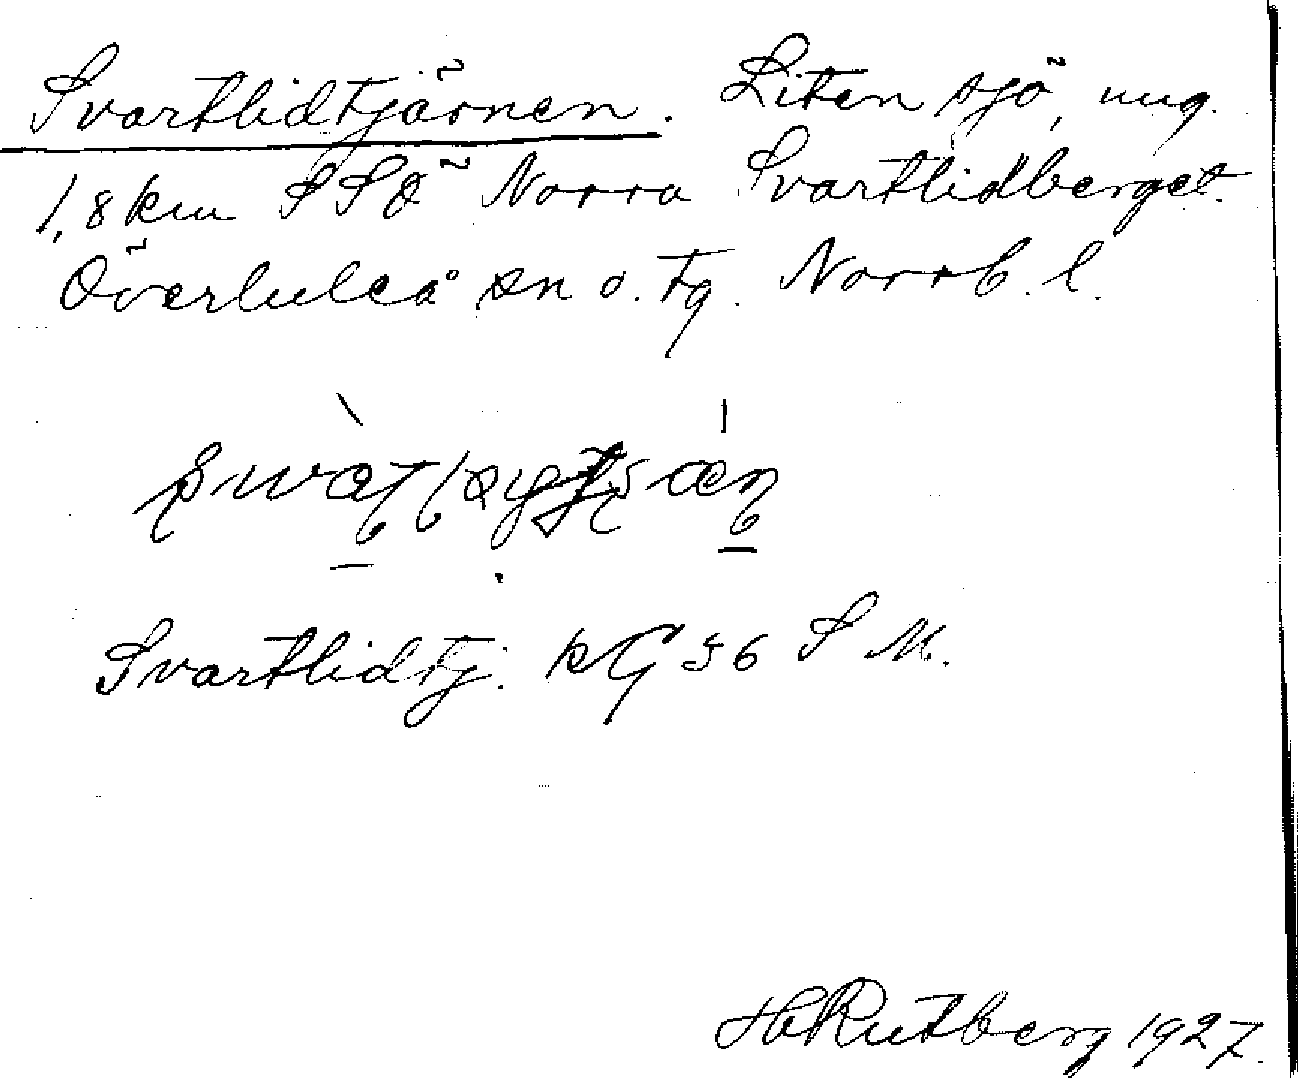 Svartlidtjärnen. Liten sjö, ung.
1,8 km SSÖ Norra Svartlidberget.
Överluleå sn o. tg. Norrb. l.
Svartlidtj. KG 56 S M.
H Rutberg 1927.